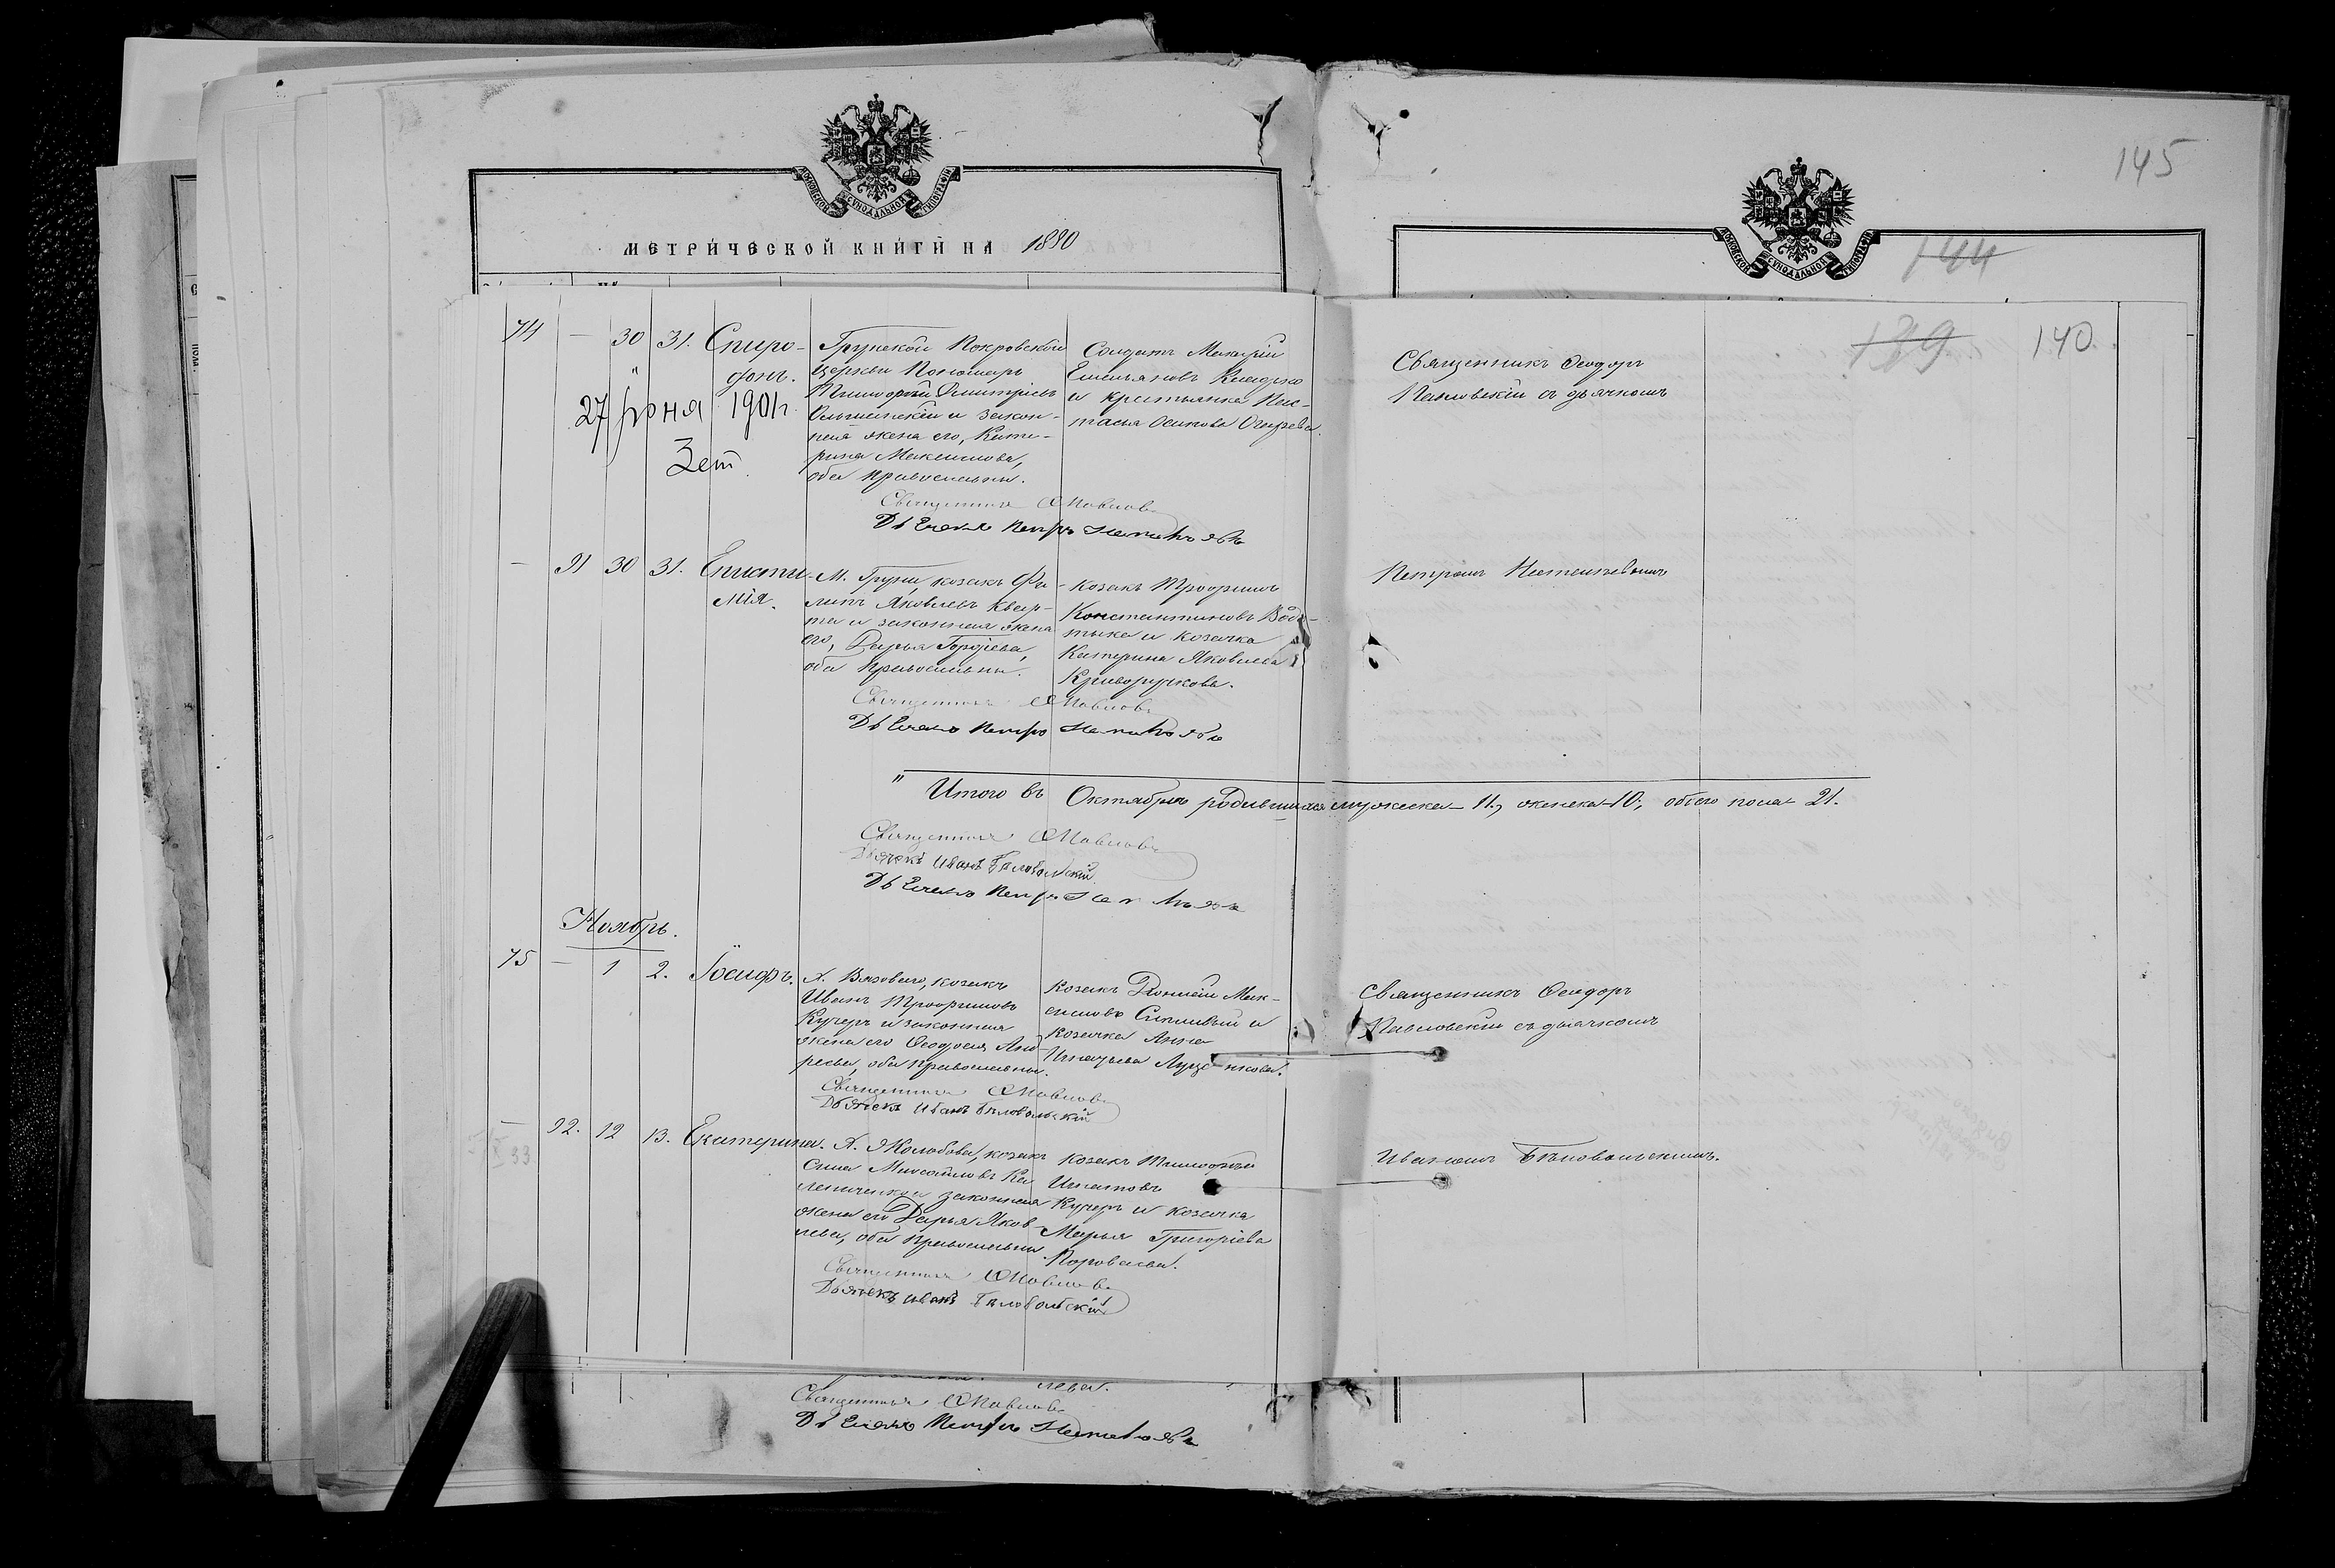 МОСКОВСКОЙ СѴНОДАЛЬНОЙ ТИПОГРАФІИ
МЕТРИЧЕСКОЙ КНИГИ НА 1890
145
МОСКОВСКОЙ СѴНОДАЛЬНОЙ ТИПОГРАФІИ
144
139 140
74 — 30 31. Спиро-
фонъ.
27 Іюня 1901 г.
Грунской Покровской
церкви Пономарь
Тимофей Димитріевъ
и закон-
ная жена его, Кате-
рина Максимова,
оба православны.
Солдатъ Макарій
Емельяновъ
и крестьянка Нас-
тасья Осипова
Священникъ Ѳеодоръ
Павловскій съ дьячкомъ
Священникъ Ѳ Павлов
Дьячекъ Петръ
— 91 30 31. Еписти-
мія.
М. Груни, козакъ Фи-
липъ Яковлевъ Квар-
та и законная жена
его, Дарья
оба православны.
Козакъ Трофимъ
Константиновъ
и козачка
Катерина Яковлева
Криворучкова.
Петромъ
Священникъ Ѳ Павлов
Дьячекъ Петръ
" Итого въ Октябрѣ родившихся мужеска — 11, женска — 10, обоего пола — 21.
Священникъ Ѳ Павлов
Дьячекъ Иванъ Бѣловольскій
Дьячекъ Петръ
Ноябрь.
75 — 1 2. Іосифъ.
Х. Вязоваго, козакъ
Иванъ Трофимовъ
Кучеръ и законная
жена его Ѳеодосія Анд-
реева, оба православны.
Козакъ Мак-
симовъ и
козачка Анна
Игнатьева Луценкова.
Священникъ Ѳеодоръ
Павловскій съ дьячкомъ
Священникъ Ѳ Павлов
Дьячекъ Иванъ Бѣловольскій
— 92. 12 13. Екатерина.
Х. Жолобова, козакъ
Сила Михайловъ Ка-
лениченко и законная
жена его Дарья Яков-
лева, оба православны
Козакъ Тимофей
Игнатовъ
Кучеръ и козачка
Марья Григоріева
Ивановъ Бѣловольскимъ.
Священникъ Ѳ Павлов
Дьячекъ Иванъ Бѣловольскій
лева.
Священникъ Ѳ Павлов
Дьячекъ Петръ